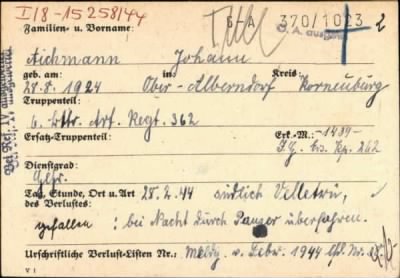 I/8-15258/44
G-A 370/1023 2
Familien- u. Vorname: G. A. ausgew.
Aichmann Johann
geb. am: in: Kreis:
28.8.1924 Ober-Alberndorf Korneuburg
Truppenteil:
6. Bttr. Art. Regt. 362
Ersatz-Truppenteil: Erk.-M.: -1439-
Dienstgrad:
Gefr.
Tag, Stunde, Ort u. Art des Verlustes: 28.2.44 südlich Velletri,
gefallen: bei Nacht durch Panzer überfahren.
Urschriftliche Verlust-Listen Nr.: Meldg. v. Febr. 1944 lfd. Nr.
V 1